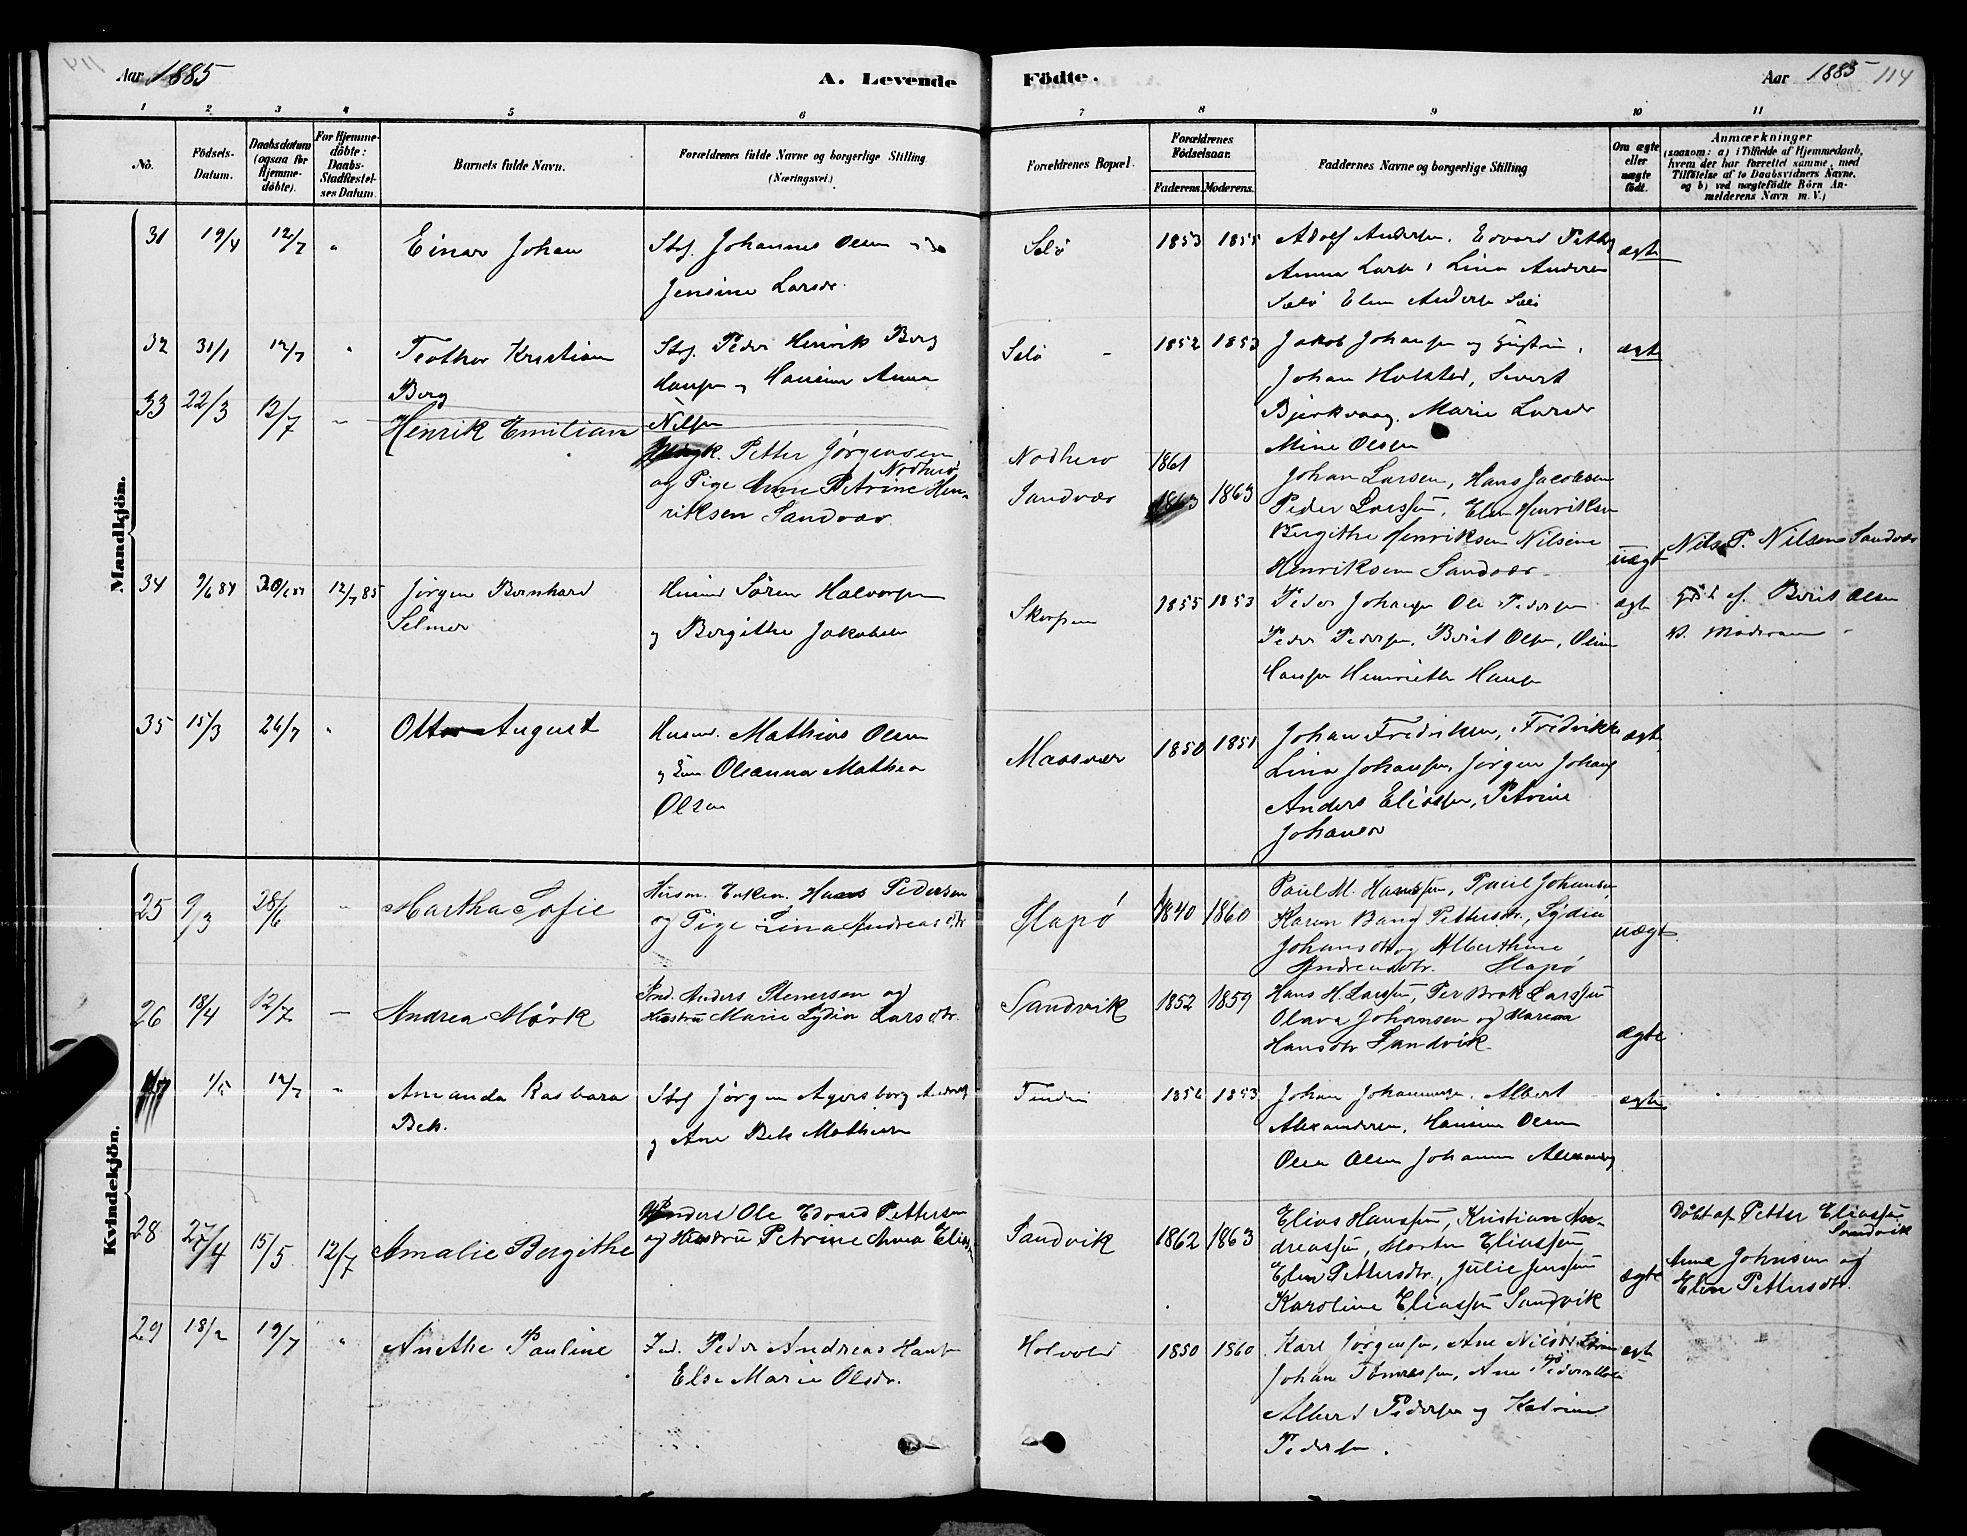 Aar 1885
A. Levende
Födte.
Aar 1885 114
1 2 3 4 5 6 7 8 9 10 11
No.
Födsels-
Datum.
Daabsdatum
(ogsaa for
Hjemme-
döbte).
For Hjemme-
döbte:
Daabs-
Stadfæstel-
ses Datum.
Barnets fulde Navn.
Forældrenes fulde Navne og borgerlige Stilling
(Næringsvei.)
Forældrenes Bopæl.
Forældrenes
Födselsaar.
Faderens. Moderens.
Faddernes Navne og borgerlige Stilling
Om ægte
eller
uægte
født.
Anmærkninger
(saasom: a) i Tilfælde af Hjemmedaab,
hvem der har forrettet samme, med
Tilföielse af to Daabsvidners Navne,
og b) ved uægtefödte Börn An-
melderens Navn m. V.)
Mandkjön.
31 19/4 12/7 " Einar Johan
Johannes Olsen
Jensine Larsdr.
Selö 1853 1855
Adolf Andersen, Edvard
Anna Larsn, Lina Andersen
Selö Elen Andersn Selö
ægte
32 31/1 12/7 " Teothor Kristian
Berg
Peder Henrik Berg
Hansen og Hansine Anna
Nilsen
Selö 1852 1853
Jakob Johansen og
Johan Holsted, Sivert
Bjørkvaag, Marie Larsdr
Mine Olsen
ægte
33 22/3 12/7 - Henrik Emilian
Petter Jørgensen
Nodherö
og Pige Anne Petrine Hen-
riksen Sandvær
Nodherö
Sandvær
1861
1863 1863
Johan Larsen, Hans Jacobsen
Peder Larssen, Elen Henriksen
Bergithe Henriksen Nilsine
Henriksen Sandvær
uægt
Nils P. Nilsen Sandvær
34 9/6 84 12/7 85 Jørgen Bernhard
Selmer
Husmd Sören Halvorsen
og Bergithe Jakobsen
1855 1853
Peder Johansen Ole Pedersen
Peder Pedersen, Berit Olsen, Oline
Hansen Henriette Hansen
ægte
af Berit Olsen
35 15/3 26/7 " August
Husmd. Mathias Olsen
og Oleanna Mathea
Olsen
Maasvær 1850 1851
Johan Fredriksen, Fredrikke
Lina Johansen, Jörgen Johans
Anders Eliassen, Petrine
Johansdr
ægte
Kvindekjön.
25 9/3 28/6 " Martha Sofie
Husm. Enkem. Hans Pedersen
og Pige Lina Andreasdtr
Slapö 1840 1860
Paul M. Hanssen, Paul Johansen
Karen Bang Pettersdtr., Lydia
Johansdtr og Alberthine
Andreasdtr. Slapö
uægt.
26 18/4 12/7 - Andrea Mörk
Anders Stenersen og
Hustru Marie Lydia Larsdtr.
Sandvik 1852 1859
Hans H. Larssen, Per Brok Larssen
Olava Johansen og Maren
Hansdtr Sandvik
ægte
1/5 12/7 " Amanda Barbara
Bek.
Jörgen Agersborg
og Ane Bek Mathisen
1853
Johan Johannesen, Albert
Alexandersen, Hansine Olsen
Olea Olsen Johanna
ægte
28 27/4 15/5 12/7 Amalie Bergithe
Ole Edvard Pettersen
og Hustru Petrine Anna
Sandvik 1862 1863
Elias Hanssen, Kristian An-
dreassen, Morten Eliassen
Elen Pettersdtr., Julie Jenssen
Karoline Eliassen Sandvik
ægte
Döbt af Petter Eliassen
Sandvik
Anne Johnsen og
Elen Pettersdtr.
29 18/2 19/7 " Anethe Pauline
Ind. Peder Andreas Hans
Else Marie Olsdr.
Holvold 1850 1860
Karl Jörgensen, Ane
Johan Tomassen, Ane
Albert Pedersen og Katrine
Pedersen.
ægte